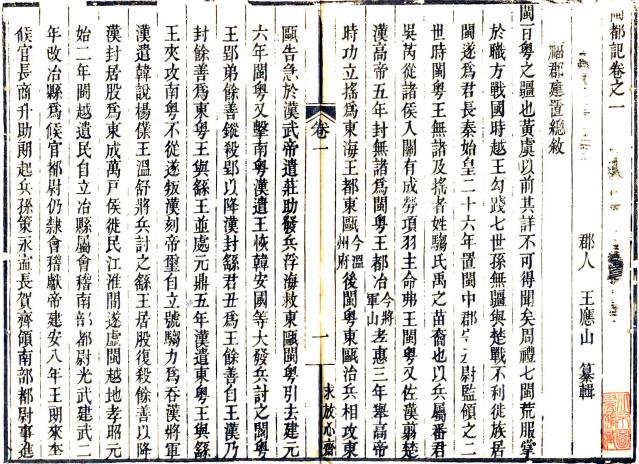 閩都記卷之一
郡人 王應山 纂輯
福郡建置總敘
閩百粵之疆也黃虞以前其詳不可得聞矣周禮七閩荒服掌
於職方戰國時越王勾踐七世孫無疆與楚戰不利徙族居
閩遂爲君長秦始皇二十六年置閩中郡 尉監領之二
世時閩粵王無諸及搖者姓騶氏禹之苗裔也以兵屬番君
吳芮從諸侯入關有成勞項羽主命弗王閩粵又佐漢翦楚
漢高帝五年封無諸爲閩粵王都冶今將軍山孝惠三年舉高帝
時功立搖爲東海王都東甌今溫州府後閩粵東甌治兵相攻東
卷一
一
求放心齋
甌告急於漢武帝遣莊助發兵浮海救東甌閩粵引去建元
六年閩粵又擊南粵漢遣王恢韓安國等大發兵討之閩粵
王郢弟餘善鏦殺郢以降漢封繇君丑爲王餘善自王漢乃
封餘善爲東粵王與繇王並處元鼎五年漢遣東粵王與繇
王夾攻南粵不從遂叛漢刻帝璽自立號騶力爲吞漢將軍
漢遣韓說楊僕王溫舒將兵討之繇王居股復殺餘善以降
漢封居股爲東成萬戸侯徙民江淮閒遂虛閩越地孝昭元
始二年閩越遺民自立冶縣屬會稽南部都尉光武建武二
年改冶縣爲候官都尉仍隸會稽獻帝建安八年王朗來奔
候官長商升助朗起兵孫策永寧長賀齊領南部都尉事進